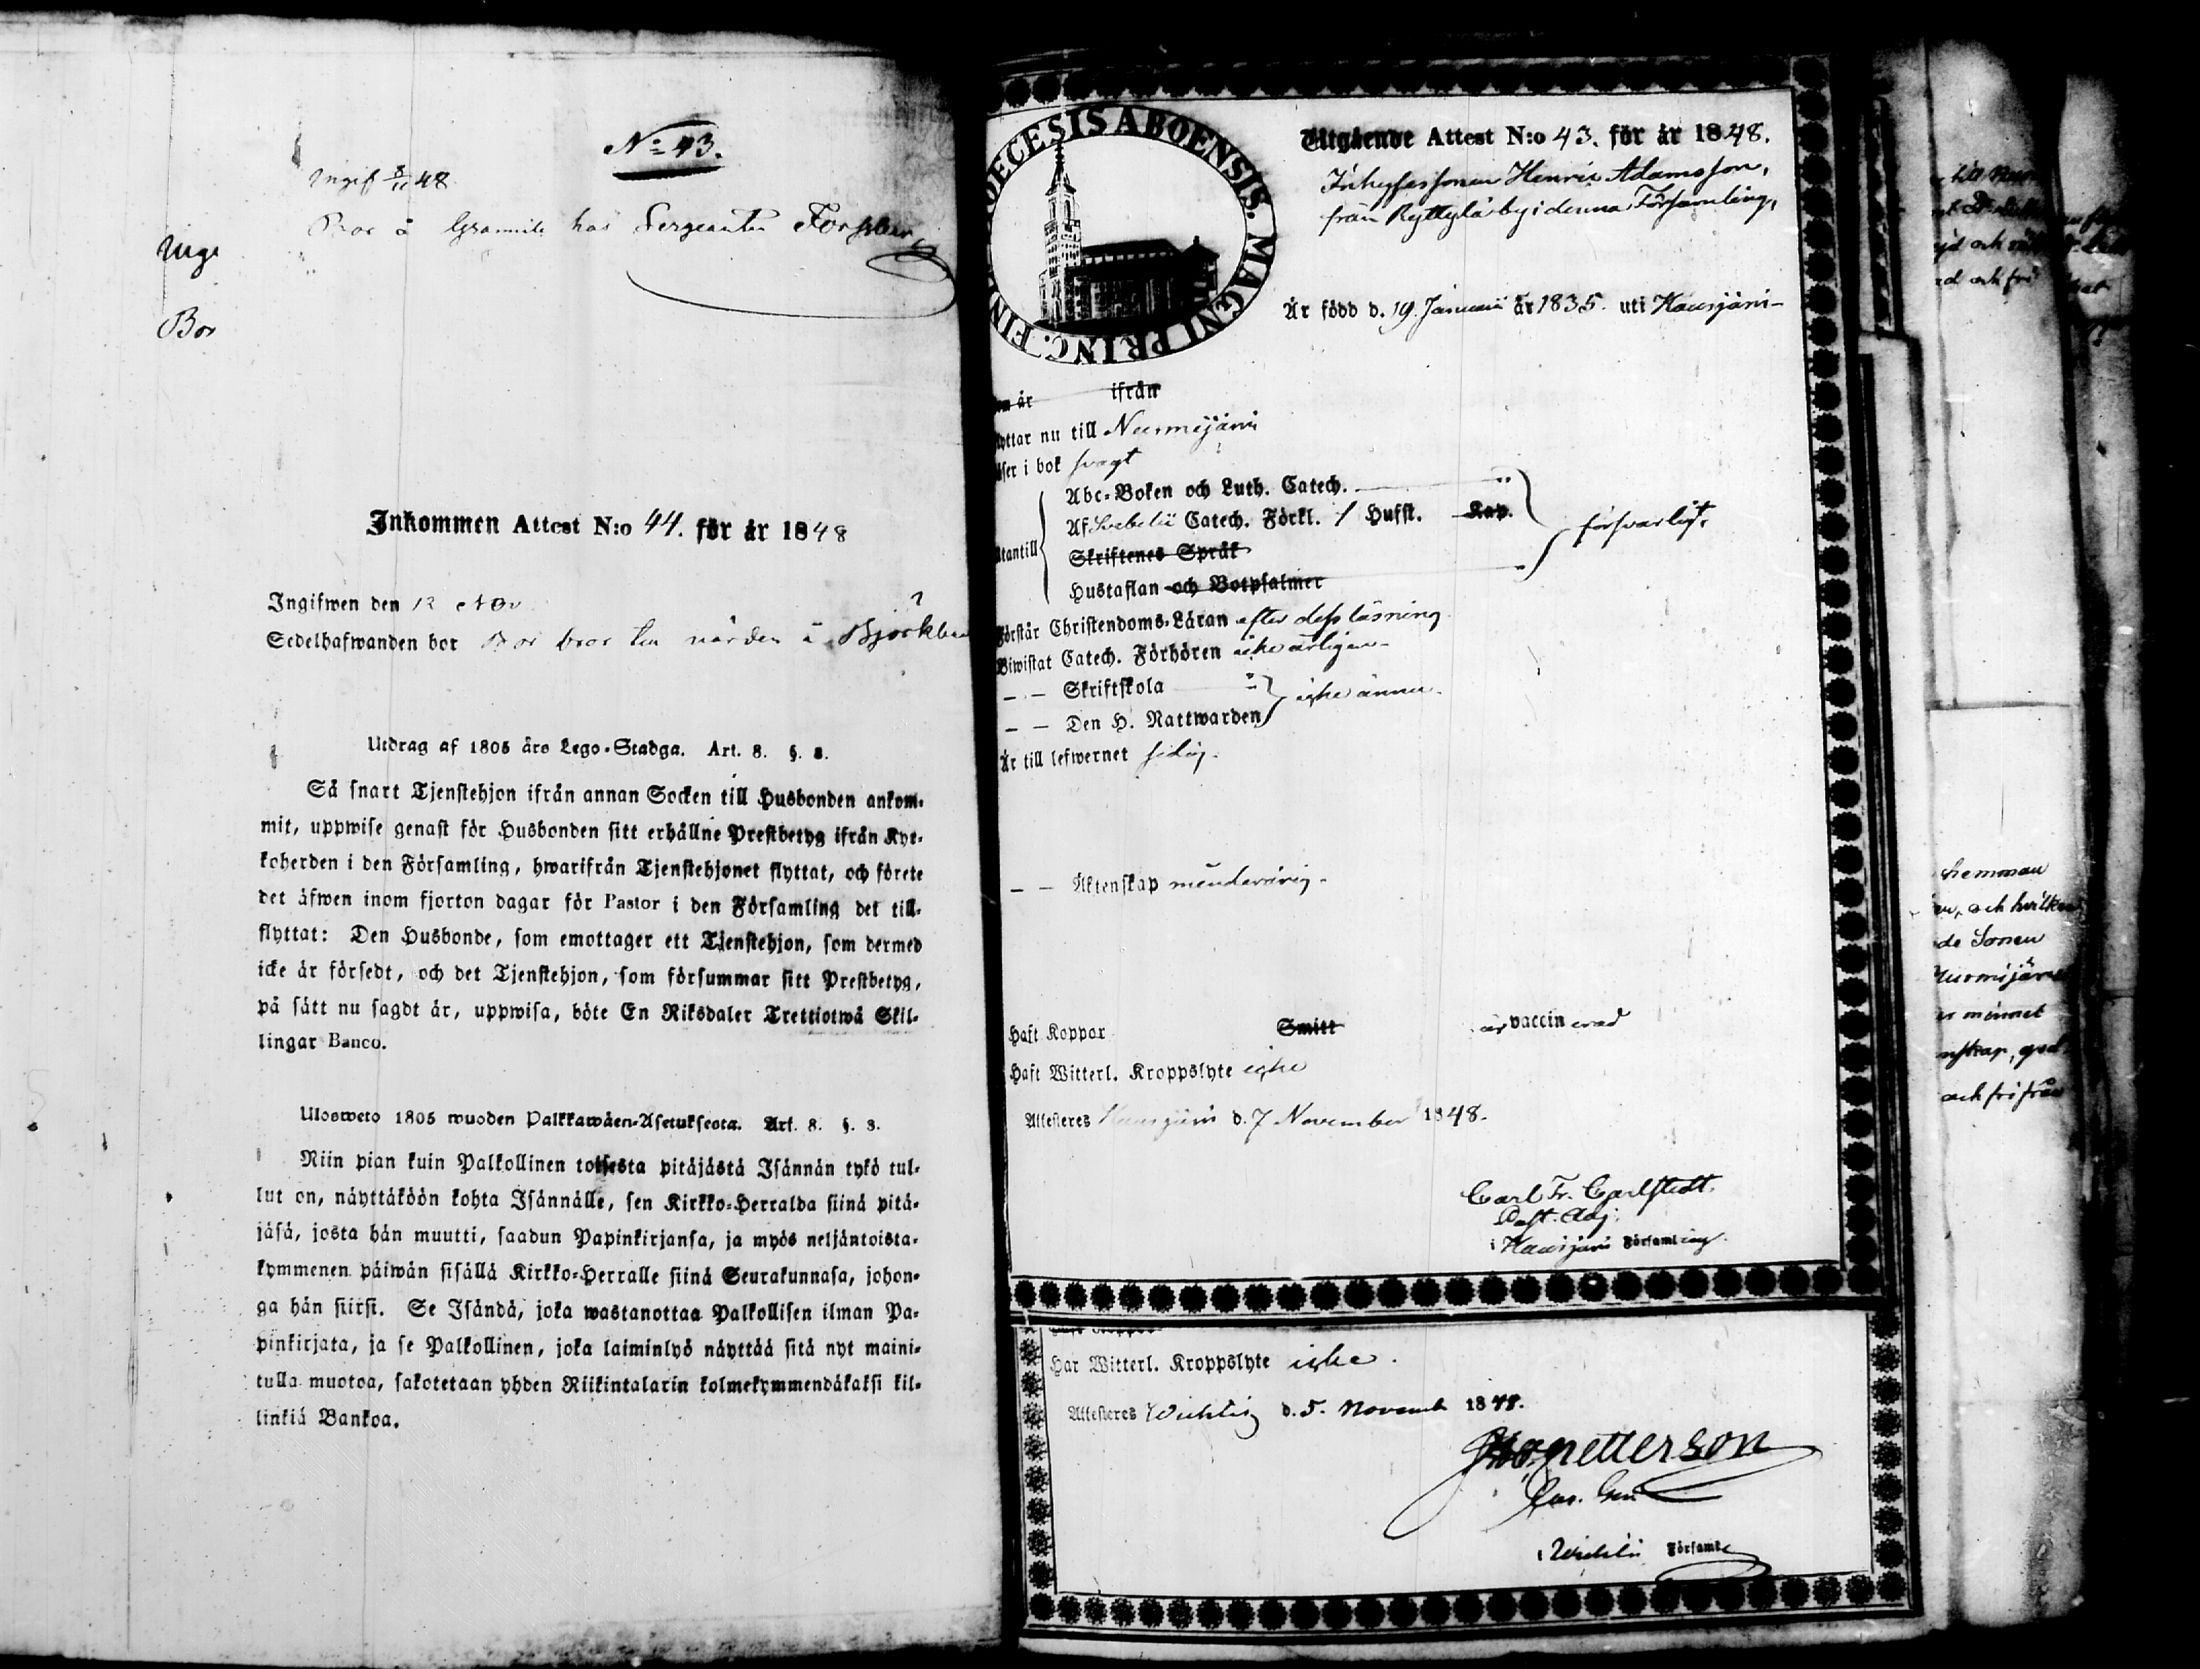 N:o 43.
Ingif 8/11 48
Bor å hos Sergeanten
Inge
Bor
Inkommen Attest N:o 44. för år 1848
Ingifwen den 12 Nov
Sedelhafwanden bor
Utdrag af 1805 års Lego-Stadga. Art. 8. §. 8.
Så snart Tjenstehjon ifrån annan Socken till Husbonden ankom-
mit, uppwise genast för Husbonden sitt erhållne Prestbetyg ifrån Kyr-
koherden i den Församling, hwarifrån Tjenstehjonet flyttat, och förete
det äfwen inom fjorton dagar för Pastor i den Församling det till-
flyttat: Den Husbonde, som emottager ett Tjenstehjon, som dermed
icke är försedt, och det Tjenstehjon, som försummar sitt Prestbetyg,
på sätt nu sagdt är, uppwisa, böte En Riksdaler Trettiotwå Skil-
lingar Banco.
Ulosweto 1805 wuoden Palkkawäen-Asetuksesta. Art. 8. §. 8.
Niin pian kuin Palkollinen toisesta pitäjästä Isännän tykö tul-
lut on, näyttäköön kohta Isännälle, sen Kirkko-Herralda siinä pitä-
jäsä, josta hän muutti, saadun Papinkirjansa, ja myös neljäntoista-
kymmenen päiwän sisällä Kirkko-Herralle siinä Seurakunnasa, johon-
ga hän siirsi. Se Isändä, joka wastanottaa Palkollisen ilman Pa-
pinkirjata, ja se Palkollinen, joka laiminlyö näyttää sitä nyt maini-
tulla muotoa, sakotetaan yhden Riikintalarin kolmekymmendäkaksi kil-
linkiä Bankoa.
DIOECESIS ABOENSIS. MAGNI PRINC. FIN
Utgående Attest N:o 43. för år 1848.
Inhysessonen Henric Adamsson,
från Ryttylä by i denna Församling,
Är född d. 19. Januarii år 1835. uti Hausjärvi-
om år ifrån
lyttar nu till Nurmijärvi
äser i bok svagt
Abc-Boken och Luth. Catech.
Af Svebelii Catech. Förkl. 1 Hufst. Kap.
försvarligt.
Utantill
Skriftenes Språk
Hustaflan och Botpsalmer
Förstår Christendoms-Läran efter dess läsning
Biwistat Catech. Förhören icke årligen-
— — Skriftskola
icke ännu.
— — Den H. Nattwarden
Är till lefwernet sedig.
— — Äktenskap minderårig-
Haft Koppor Smitt är vaccinerad
Haft Witterl. Kroppslyte icke
Attesteres Hausjärvi d. 7 November 1848.
Carl Fr. Carlstedt.
Past. Adj.
i Hausjärvi Församling.
Har Witterl. Kroppslyte icke.
Attesteres Wichtis d. 5. Novemb 1848.
i Wichtis Församl
hemman
och hvilken
de Sonen
Nurmijärvi
minnet
och fri från